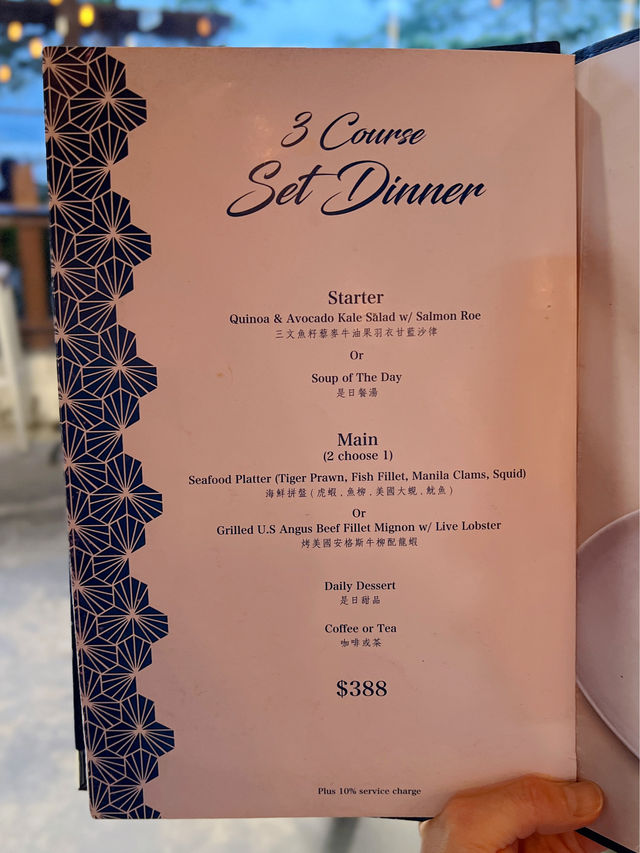 3 Course
Set Dinner
Starter
Quinoa & Avocado Kale Salad w/ Salmon Roe
三文魚籽藜麥牛油果羽衣甘藍沙律
Or
Soup of The Day
是日餐湯
Main
(2 choose 1)
Seafood Platter (Tiger Prawn, Fish Fillet, Manila Clams, Squid)
海鮮拼盤(虎蝦,魚柳,美國大蜆,魷魚)
Or
Grilled U.S Angus Beef Fillet Mignon w/ Live Lobster
烤美國安格斯牛柳配龍蝦
Daily Dessert
是日甜品
Coffee or Tea
咖啡或茶
$388
Plus 10% service charge